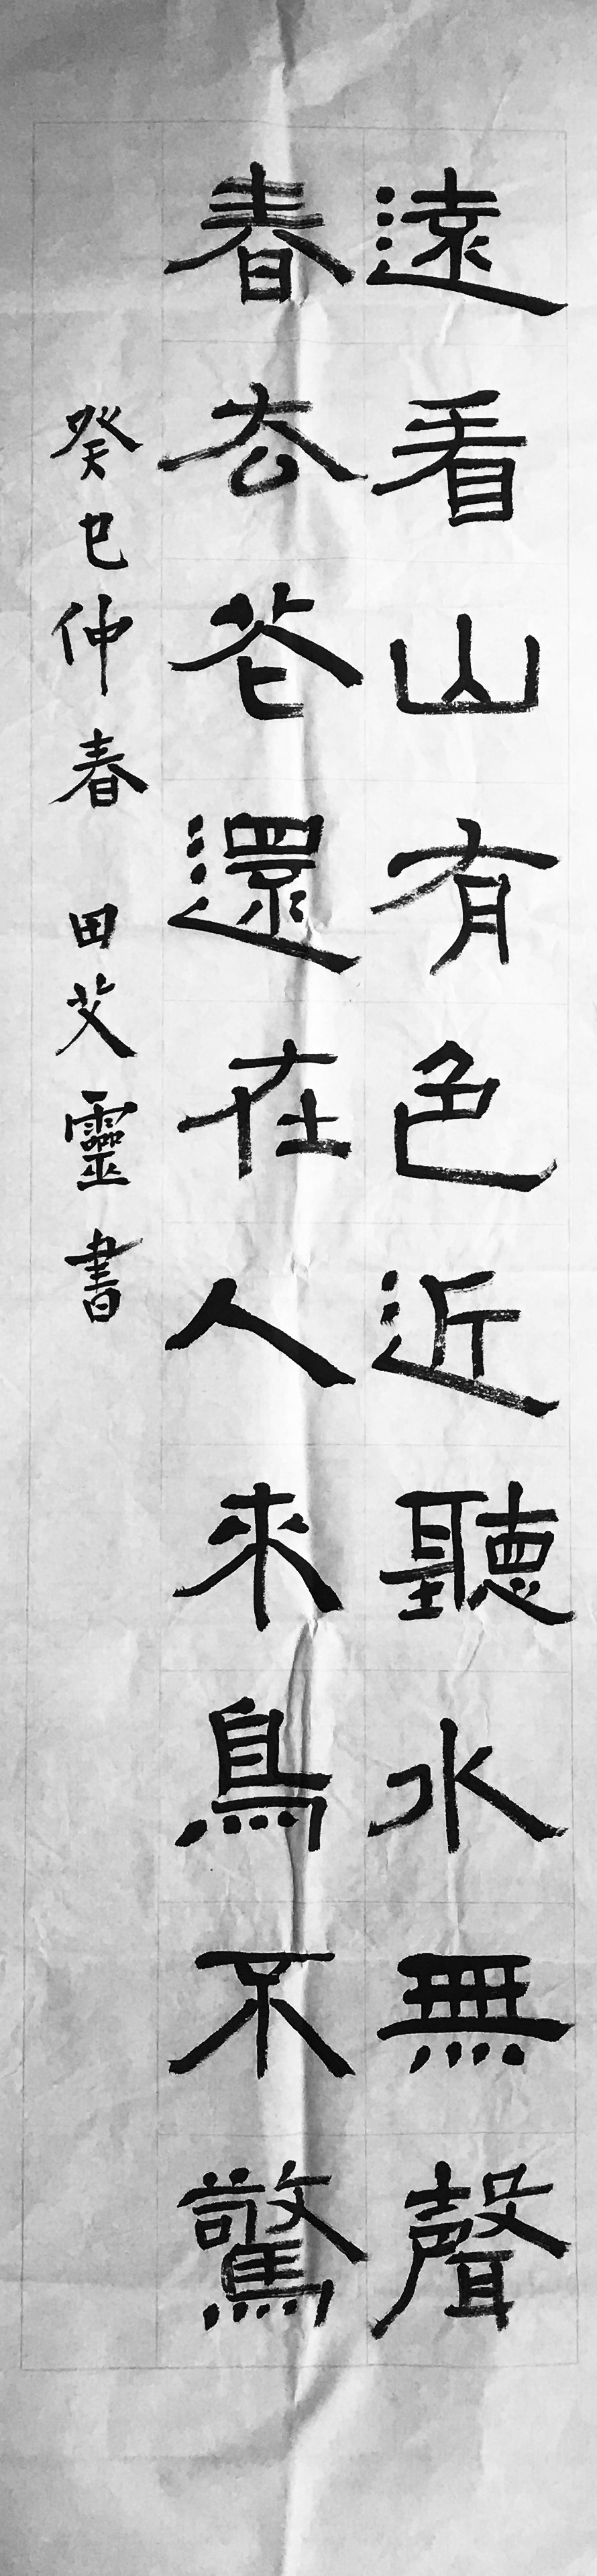 遠看山有色近聽水無聲
春去花還在人來鳥不驚
癸巳仲春 田艾靈書